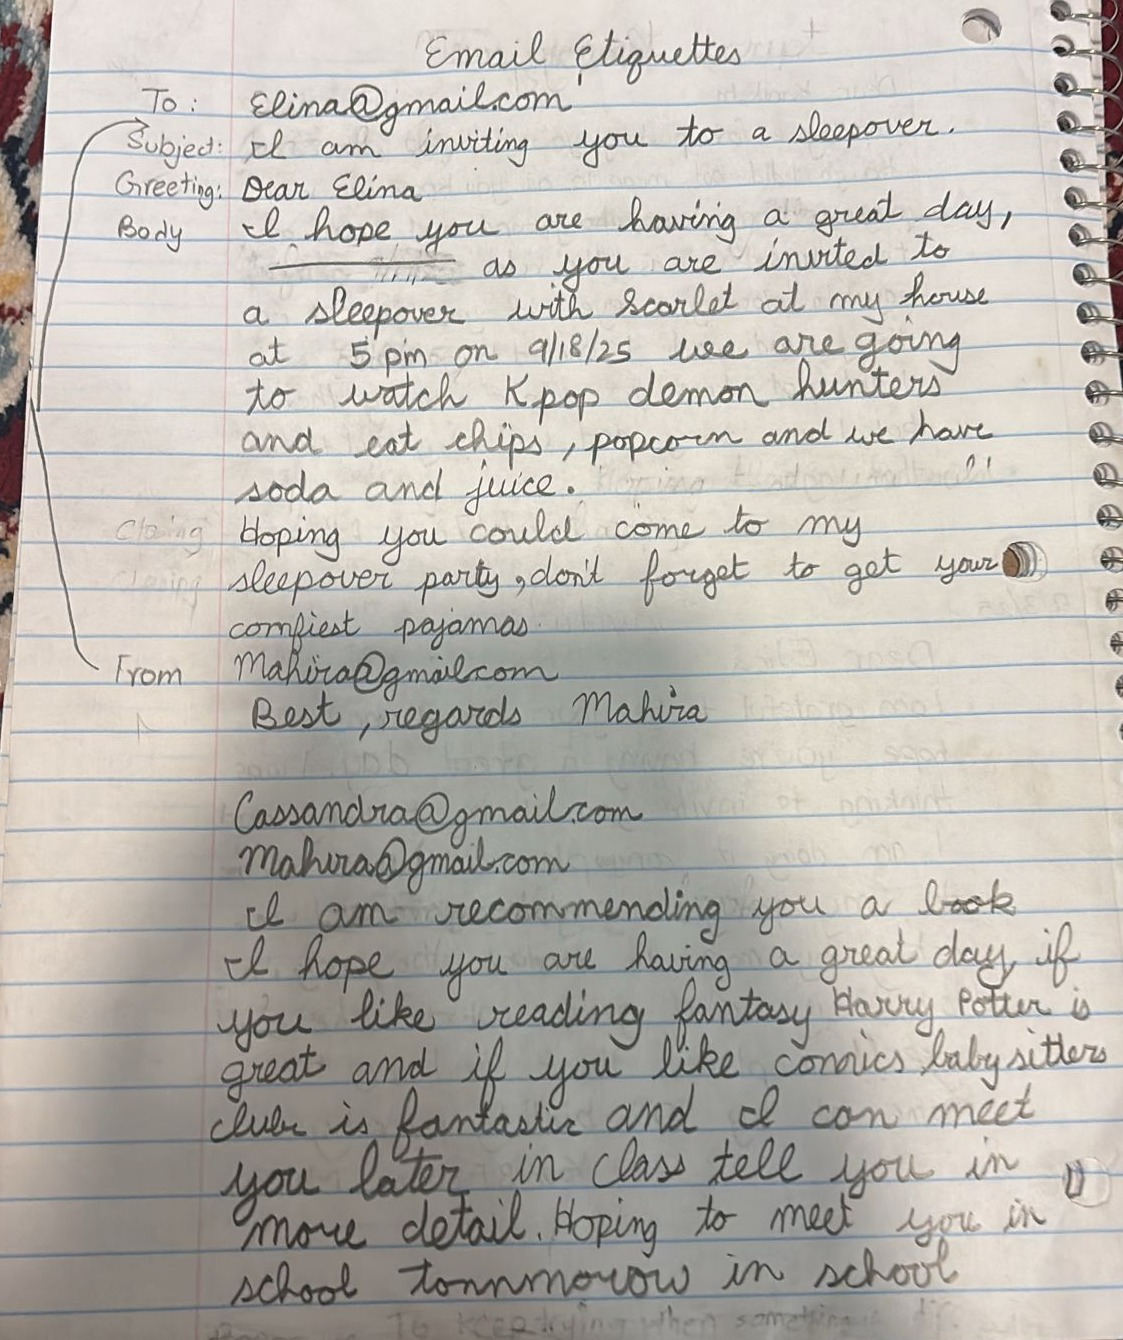 Email Etiquettes
To: Elina@gmail.com
Subject: I am inviting you to a sleepover.
Greeting: Dear Elina
Body I hope you are having a great day,
as you are invited to
a sleepover with Scarlet at my house
at 5 pm on 9/18/25 we are going
to watch Kpop demon hunters
and eat chips, popcorn and we have
soda and juice.
Closing Hoping you could come to my
Closing sleepover party, don't forget to get your
comfiest pajamas.
From Mahira@gmail.com
Best, regards Mahira
Cassandra@gmail.com
Mahira@gmail.com
I am recommending you a book
I hope you are having a great day, if
you like reading fantasy Harry Potter is
great and if you like comics, baby sitters
club is fantastic and I can meet
you later in class tell you in
more detail. Hoping to meet you in
school tommmorow in school